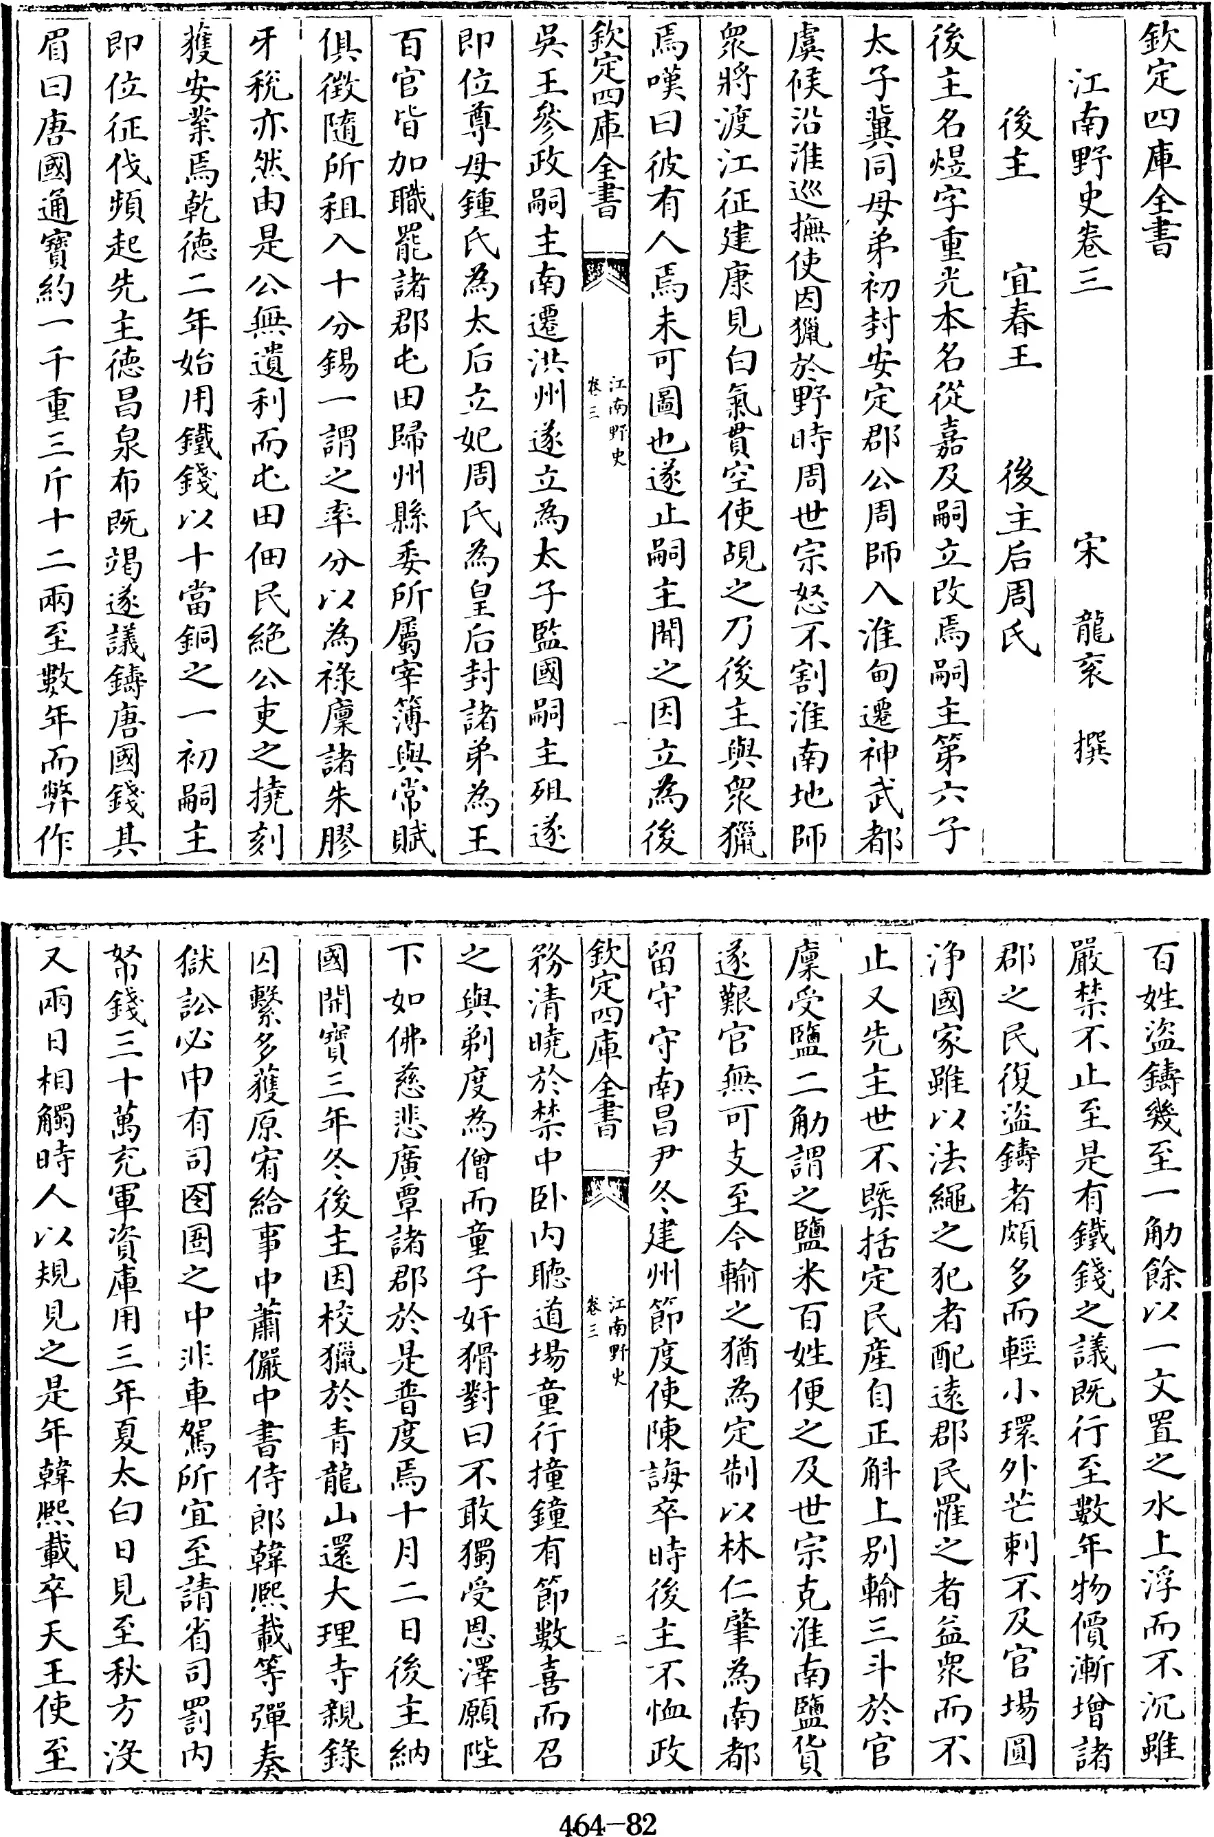 欽定四庫全書
江南野史卷三
宋 龍袞 撰
後主 宜春王 後主后周氏
後主名煜字重光本名從嘉及嗣立改焉嗣主第六子
太子冀同母弟初封安定郡公周師入淮甸遷神武都
虞候沿淮巡撫使因獵於野時周世宗怒不割淮南地師
衆將渡江征建康見白氣貫空使覘之乃後主與衆獵
焉嘆曰彼有人焉未可圖也遂止嗣主聞之因立為後
欽定四庫全書
江南野史
卷三
一
吳王參政嗣主南遷洪州遂立為太子監國嗣主殂遂
即位尊母鍾氏為太后立妃周氏為皇后封諸弟為王
百官皆加職罷諸郡屯田歸州縣委所屬宰簿與常賦
俱徵隨所租入十分錫一謂之率分以為祿廩諸朱膠
牙稅亦然由是公無遺利而屯田佃民絶公吏之撓刻
獲安業焉乾德二年始用鐵錢以十當銅之一初嗣主
即位征伐頻起先主德昌泉布既竭遂議鑄唐國錢其
眉曰唐國通寶約一千重三斤十二兩至數年而弊作
百姓盜鑄幾至一觔餘以一文置之水上浮而不沉雖
嚴禁不止至是有鐵錢之議既行至數年物價漸增諸
郡之民復盜鑄者頗多而輕小環外芒刺不及官場圓
淨國家雖以法繩之犯者配遠郡民罹之者益衆而不
止又先主世不槩括定民產自正斛上別輸三斗於官
廩受鹽二觔謂之鹽米百姓便之及世宗克淮南鹽貨
遂艱官無可支至今輸之猶為定制以林仁肇為南都
留守守南昌尹冬建州節度使陳誨卒時後主不恤政
欽定四庫全書
江南野史
卷三
二
務清曉於禁中卧内聽道場童行撞鐘有節數喜而召
之與剃度為僧而童子奸猾對曰不敢獨受恩澤願陛
下如佛慈悲廣覃諸郡於是普度焉十月二日後主納
國開寶三年冬後主因校獵於青龍山還大理寺親錄
囚繫多獲原宥給事中蕭儼中書侍郎韓熙載等彈奏
獄訟必申有司囹圄之中非車駕所宜至請省司罰内
帑錢三十萬充軍資庫用三年夏太白日見至秋方沒
又兩日相觸時人以規見之是年韓熙載卒天王使至
464-82